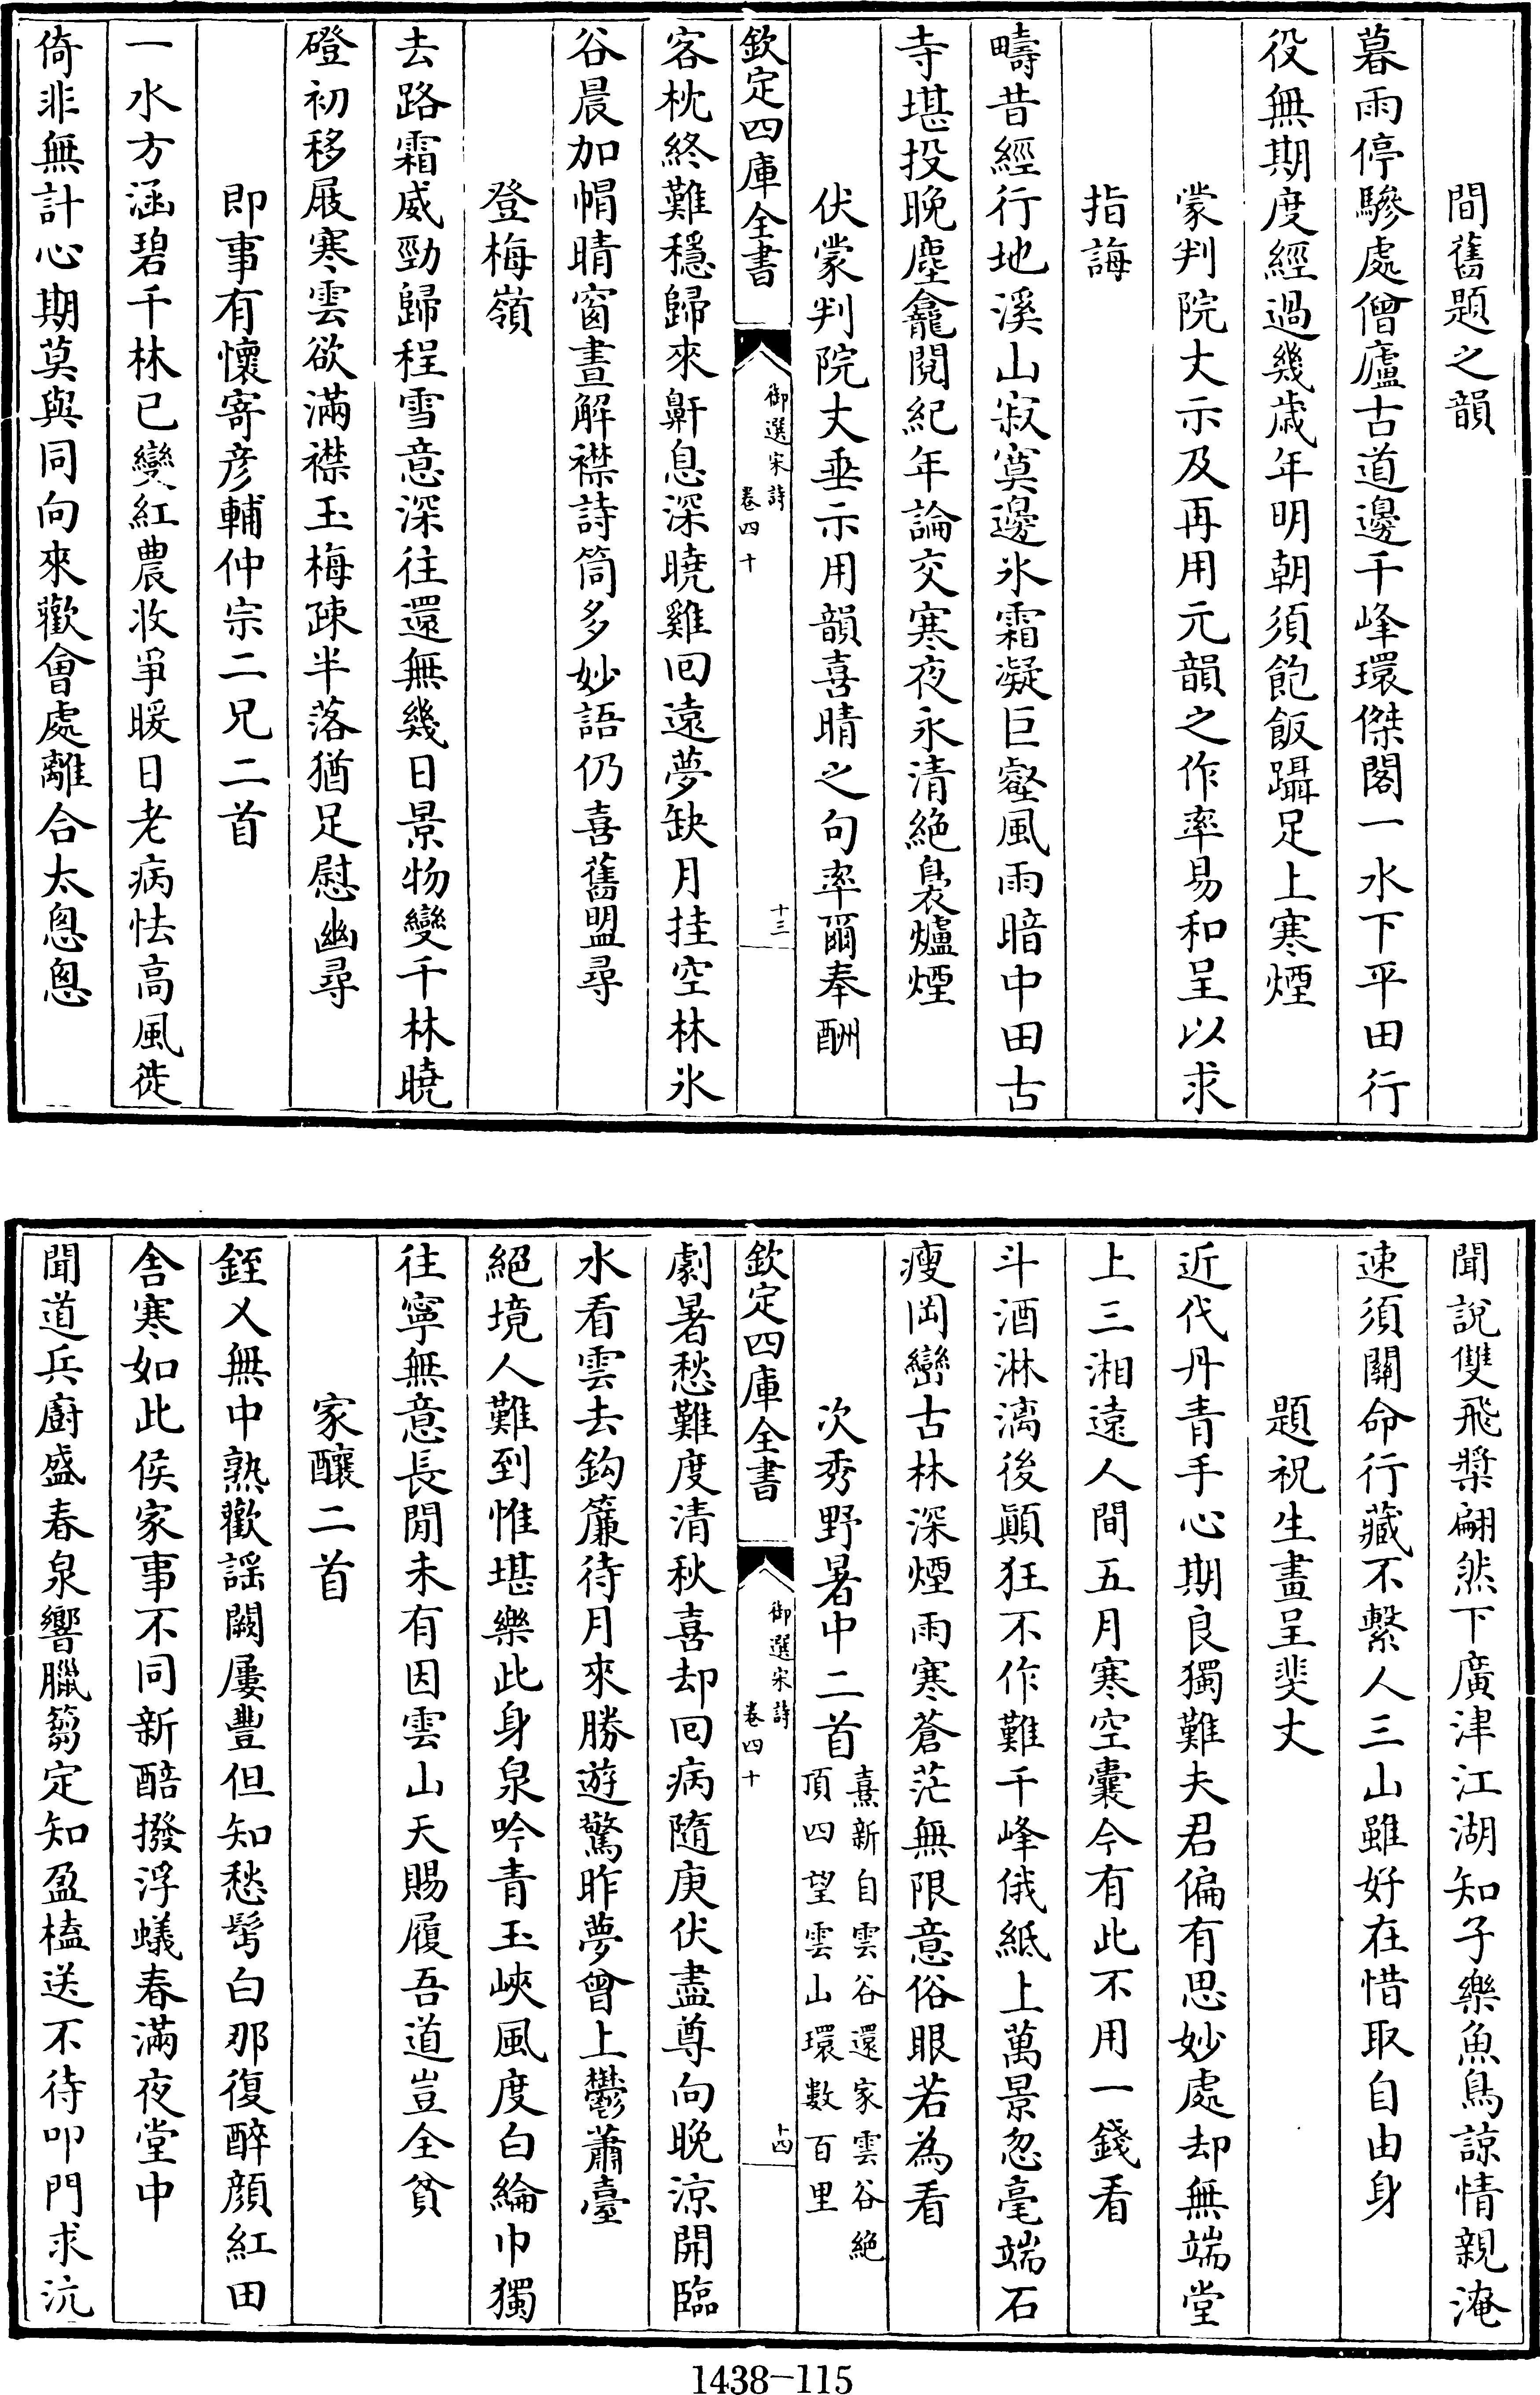 間舊題之韻
暮雨停驂處僧廬古道邊千峰環傑閣一水下平田行
役無期度經過幾歲年明朝須飽飯躡足上寒煙
蒙判院丈示及再用元韻之作率易和呈以求
指誨
疇昔經行地溪山寂寞邊氷霜凝巨壑風雨暗中田古
寺堪投晚塵龕閱紀年論交寒夜永清絶裊爐煙
伏蒙判院丈垂示用韻喜晴之句率爾奉酬
欽定四庫全書
御選宋詩
卷四十
十三
客枕終難穩歸來鼾息深曉雞回遠夢缺月挂空林氷
谷晨加帽晴窗晝解襟詩筒多妙語仍喜舊盟尋
登梅嶺
去路霜威勁歸程雪意深往還無幾日景物變千林曉
磴初移屐寒雲欲滿襟玉梅疎半落猶足慰幽尋
即事有懷寄彦輔仲宗二兄二首
一水方涵碧千林已變紅農收爭暖日老病怯高風徙
倚非無計心期莫與同向來歡會處離合太悤悤
聞說雙飛槳翩然下廣津江湖知子樂魚鳥諒情親淹
速須關命行藏不繫人三山雖好在惜取自由身
題祝生畫呈斐丈
近代丹青手心期良獨難夫君偏有思妙處却無端堂
上三湘遠人間五月寒空囊今有此不用一錢看
斗酒淋漓後顛狂不作難千峰俄紙上萬景忽毫端石
瘦岡巒古林深煙雨寒蒼茫無限意俗眼若為看
次秀野暑中二首
熹新自雲谷還家雲谷絶
頂四望雲山環數百里
欽定四庫全書
御選宋詩
卷四十
十四
劇暑愁難度清秋喜却回病隨庚伏盡尊向晚凉開臨
水看雲去鈎簾待月來勝遊驚昨夢曾上鬱蕭臺
絕境人難到惟堪樂此身泉吟青玉峽風度白綸巾獨
往寧無意長閒未有因雲山天賜履吾道豈全貧
家釀二首
銍乂無中熟歡謡闕屢豐但知愁髩白那復醉顔紅田
舍寒如此侯家事不同新醅撥浮蟻春滿夜堂中
聞道兵廚盛春泉響臘篘定知盈榼送不待叩門求沆
1438-115